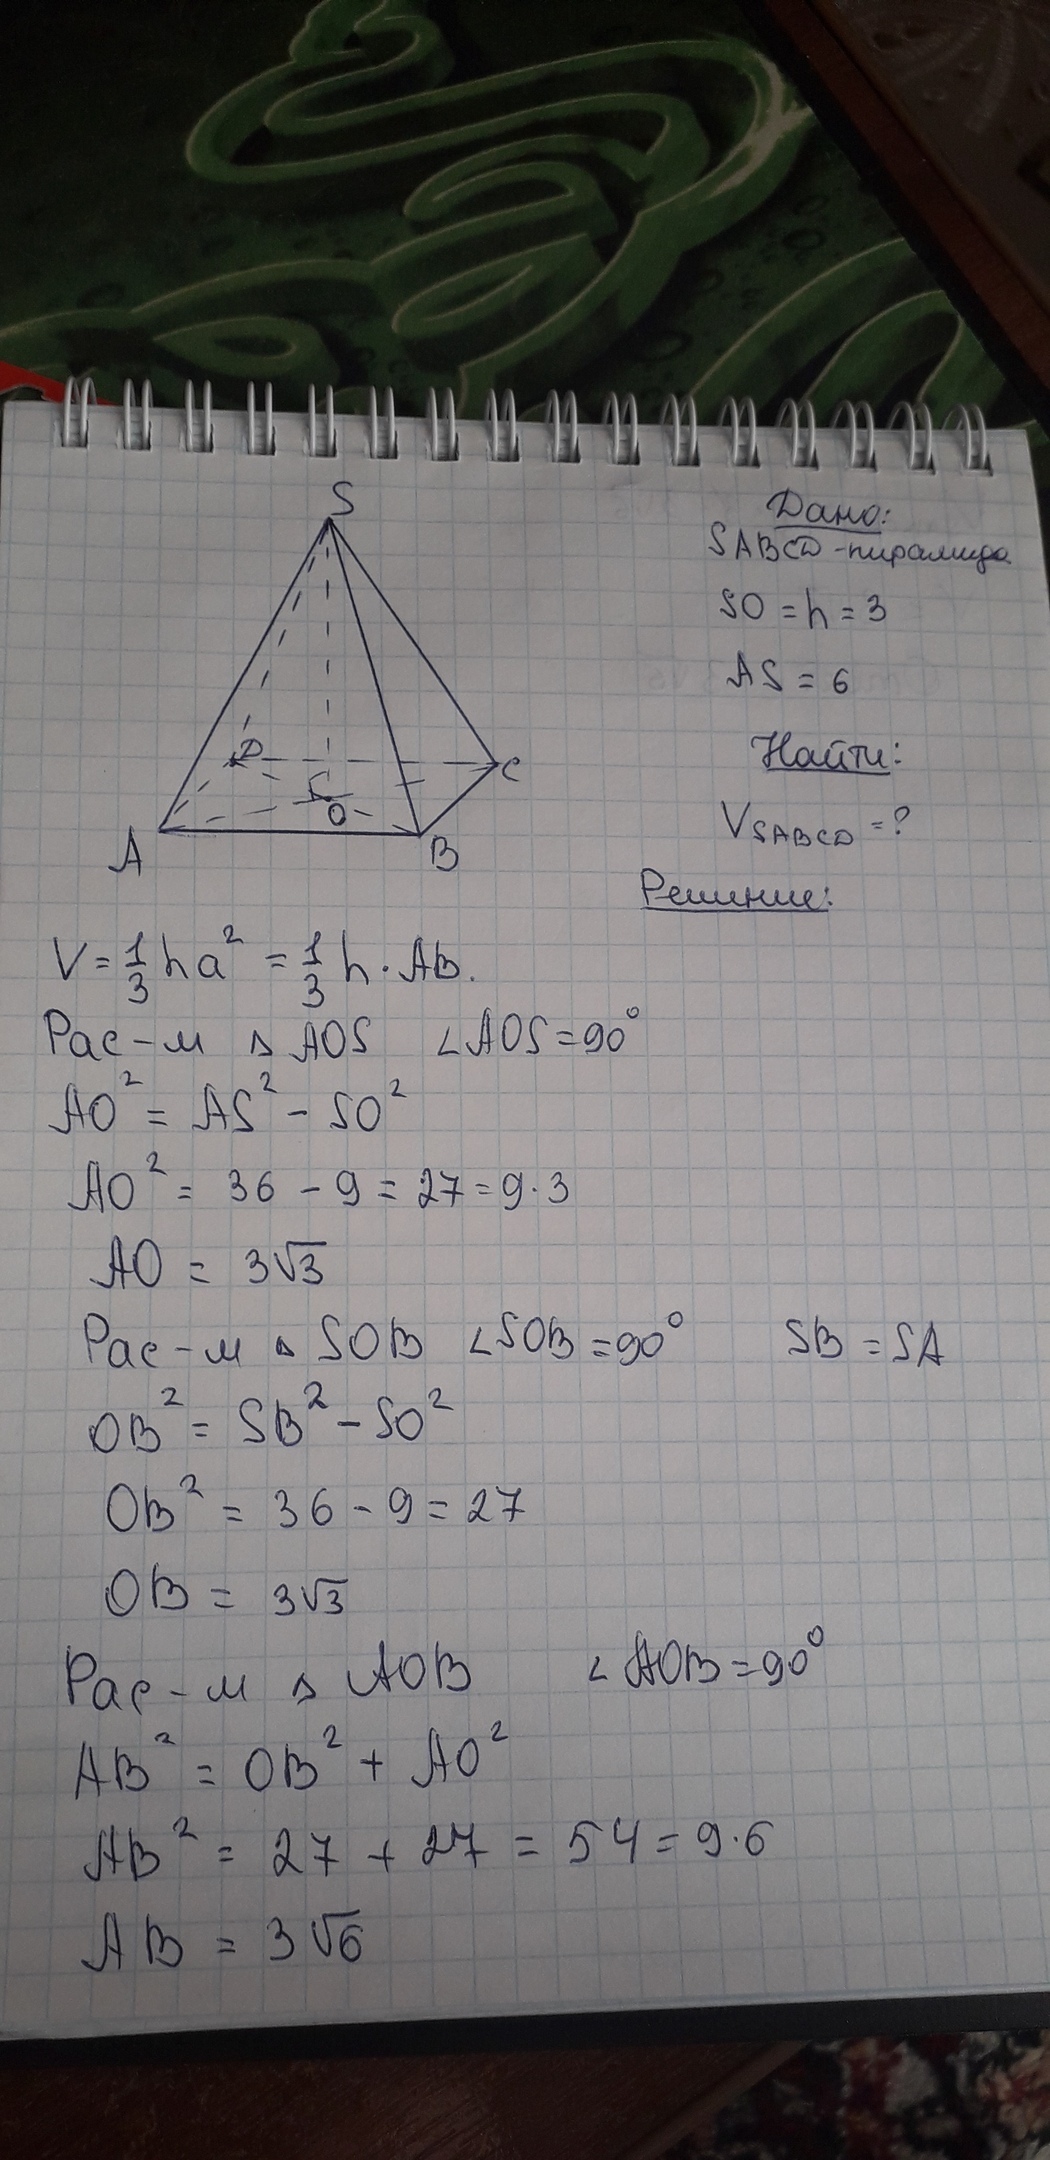 S
Дано:
SABCD - пирамида
SO = h = 3
AS = 6
Найти:
V_SABCD = ?
D
C
O
A
B
Решение:
V = 1/3 ha² = 1/3 h · AB.
Рас-м △ AOS ∠AOS = 90°
AO² = AS² - SO²
AO² = 36 - 9 = 27 = 9·3
AO = 3√3
Рас-м △ SOB ∠SOB = 90° SB = SA
OB² = SB² - SO²
OB² = 36 - 9 = 27
OB = 3√3
Рас-м △ AOB ∠AOB = 90°
AB² = OB² + AO²
AB² = 27 + 27 = 54 = 9·6
AB = 3√6